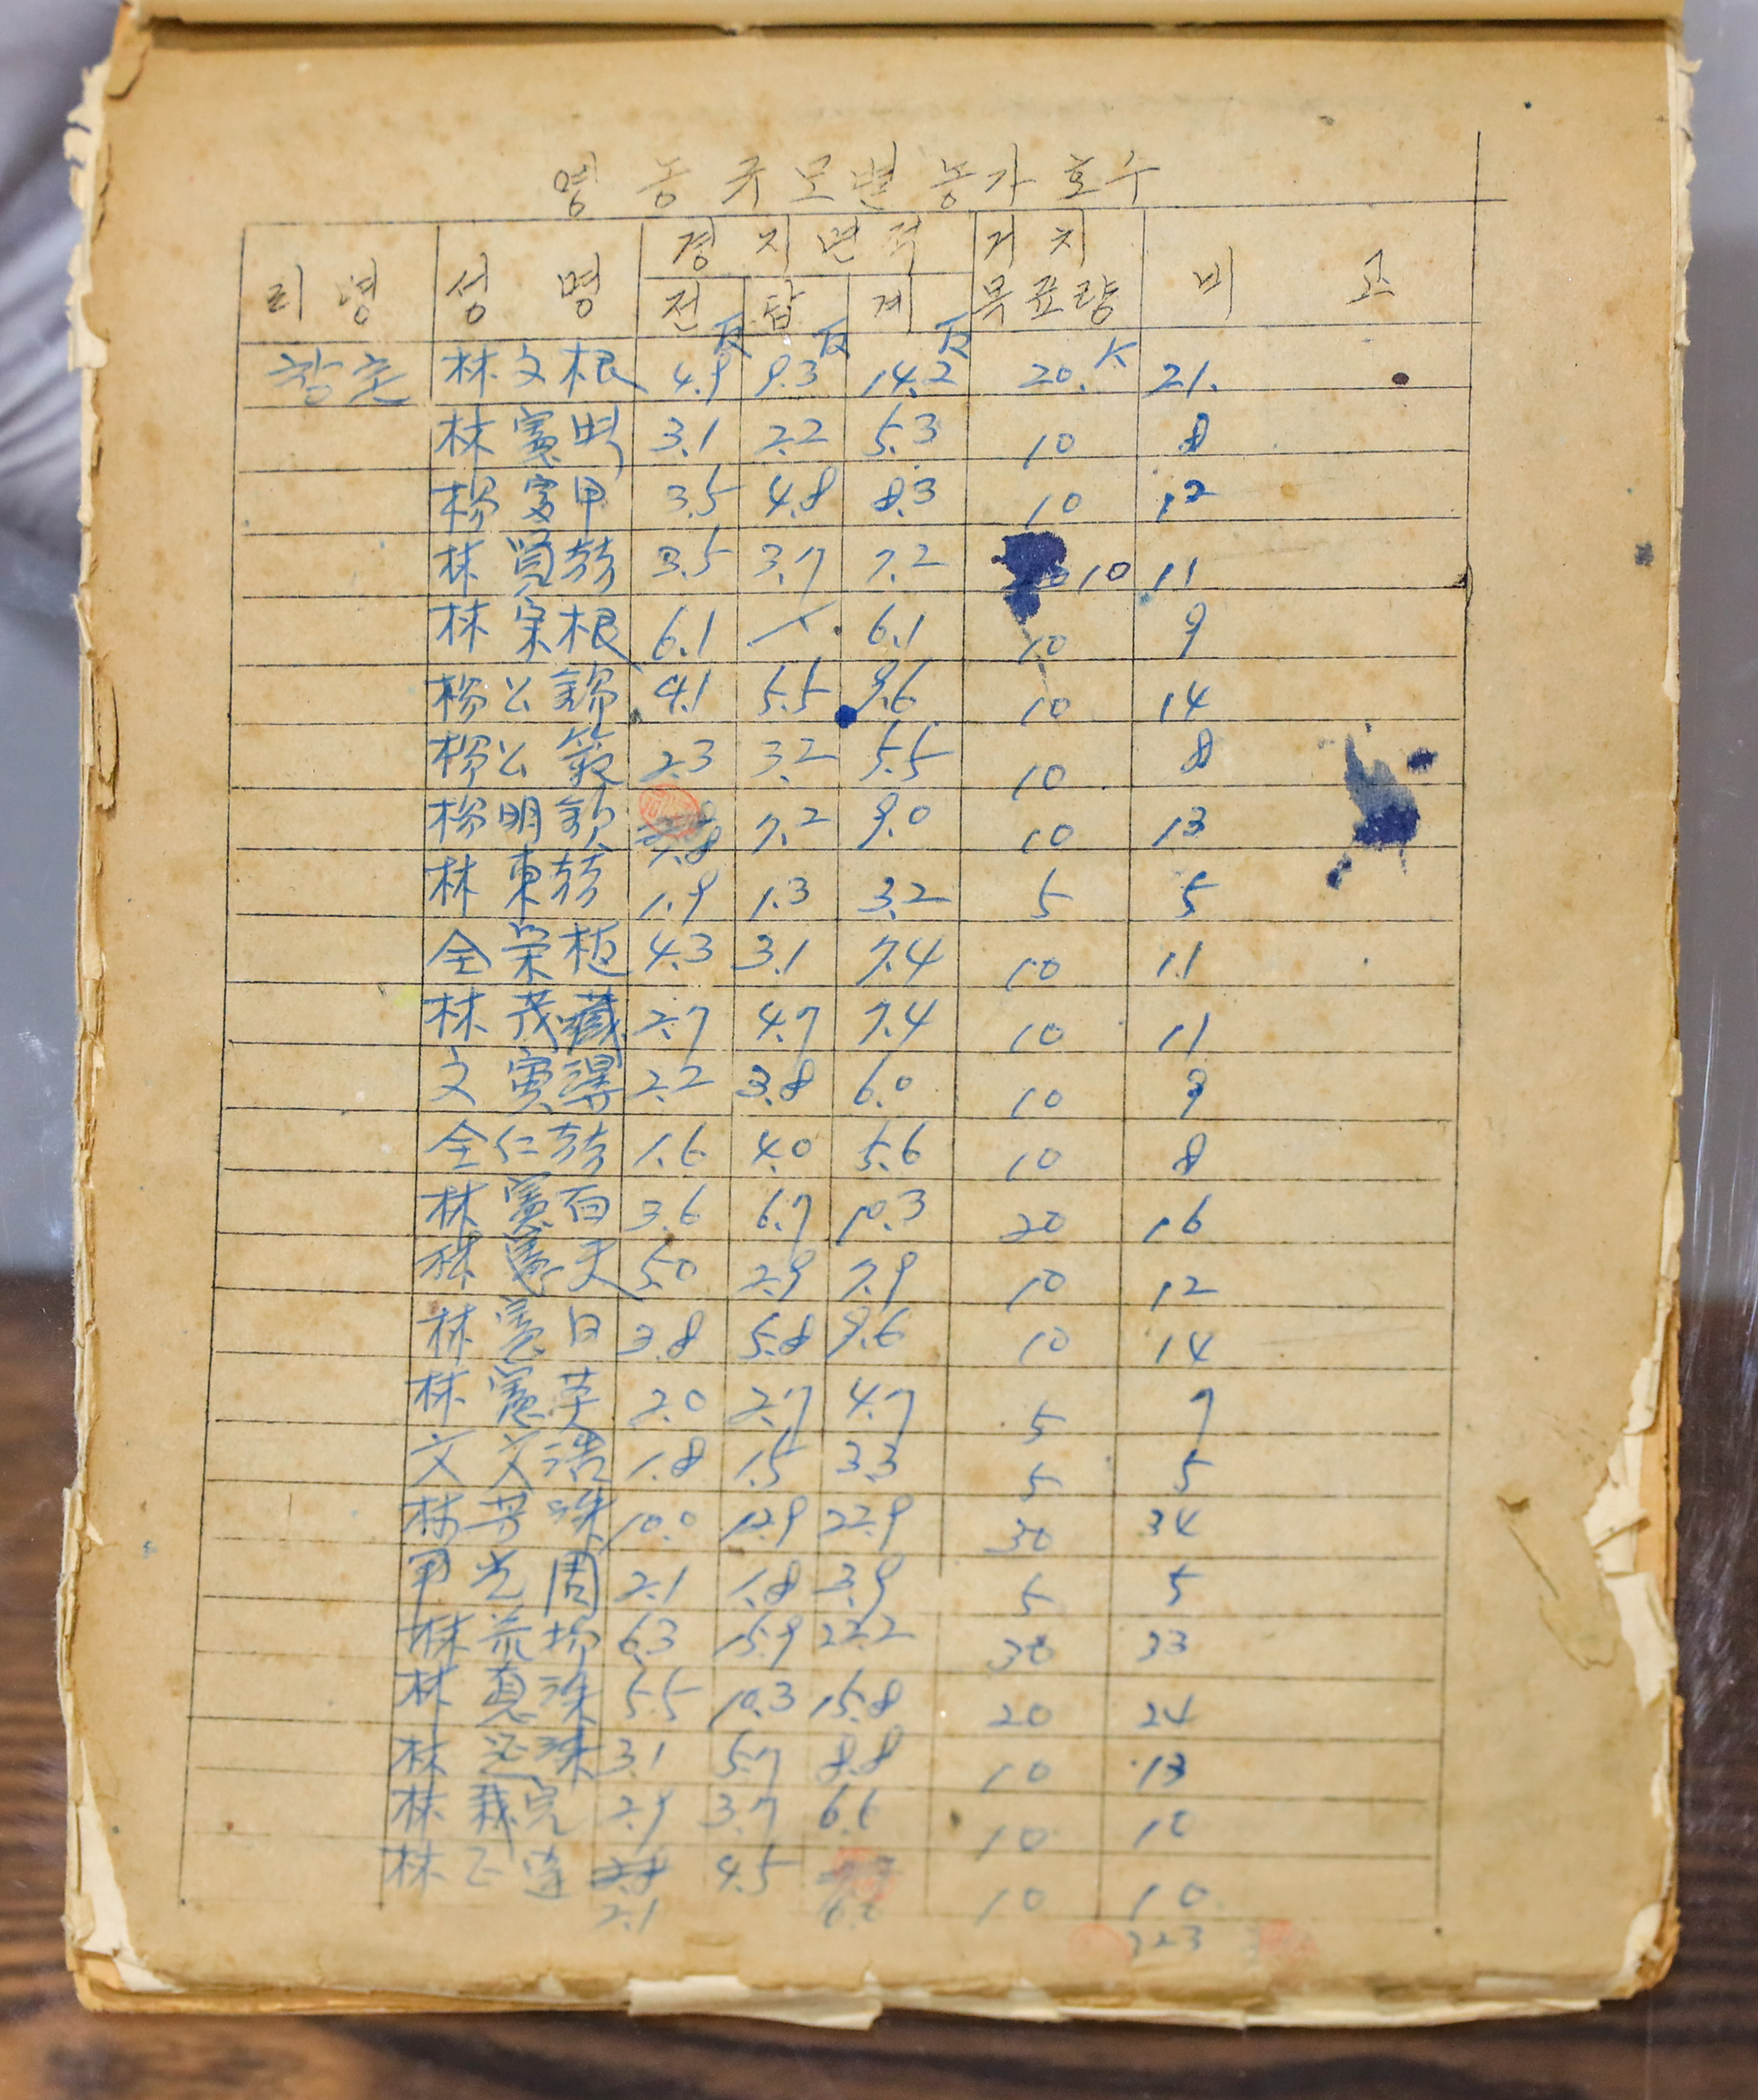 영농규모별 농가호수
리명 성명 경지면적 거치 비고
전 답 계 목표량
反 反 反
창촌 林文根 4.9 9.3 14.2 20.K 21.
林憲 3.1 2.2 5.3 10 8
楊 甲 3.5 4.8 8.3 10 12
林賢 3.5 3.7 7.2 10 11
林宗根 6.1 6.1 10 9
楊公錫 4.1 5.5 9.6 10 14
楊公 2.3 3.2 5.5 10 8
楊明欽 1.8 7.2 9.0 10 13
林東 1.9 1.3 3.2 5 5
全榮植 4.3 3.1 7.4 10 11
林茂藏 2.7 4.7 7.4 10 11
文寅 2.2 3.8 6.0 10 9
全仁 1.6 4.0 5.6 10 8
林憲百 3.6 6.7 10.3 20 16
林憲 5.0 2.9 7.9 10 12
林憲日 3.8 5.8 9.6 10 14
林憲英 2.0 2.7 4.7 5 7
文 浩 1.8 1.5 3.3 5 5
林芳洙 10.0 12.9 22.9 30 34
光周 2.1 1.8 3.9 5 5
林 6.3 15.9 22.2 30 33
林 洙 5.5 10.3 15.8 20 24
林 洙 3.1 5.7 8.8 10 13
林 完 2.9 3.7 6.6 10 10
林 4.5 10 10
2.1 6.6
323